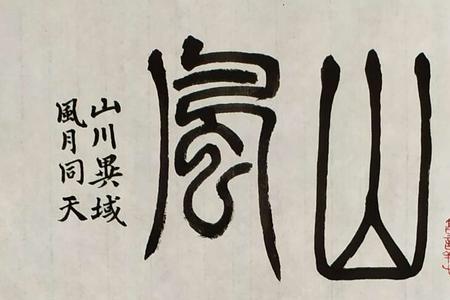 山風
山川異域
風月同天